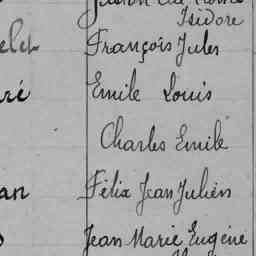 Isidore
François Jules
Emile Louis
Charles Emile
Félix Jean Julien
Jean Marie Eugène